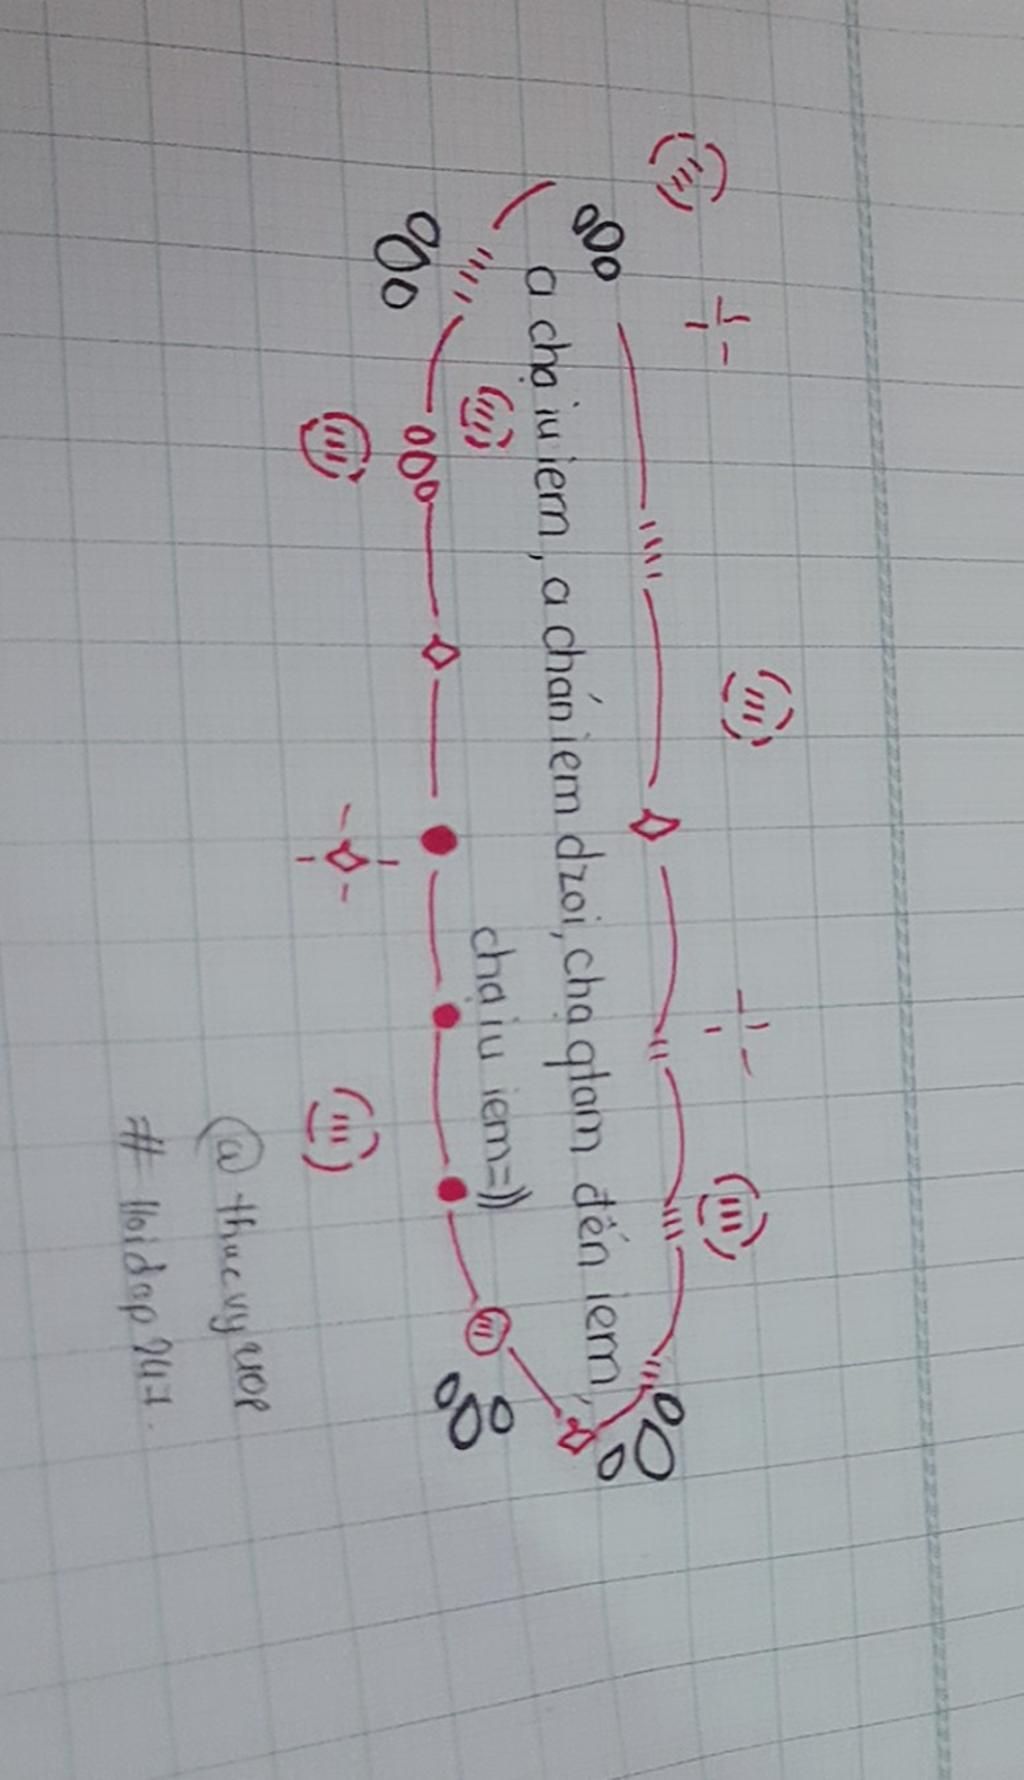 a chạ iu iem, a chán iem dzoi, chạ qtam đến iem,
chạ iu iem=))
@thucvyuop
#Hoidap247.